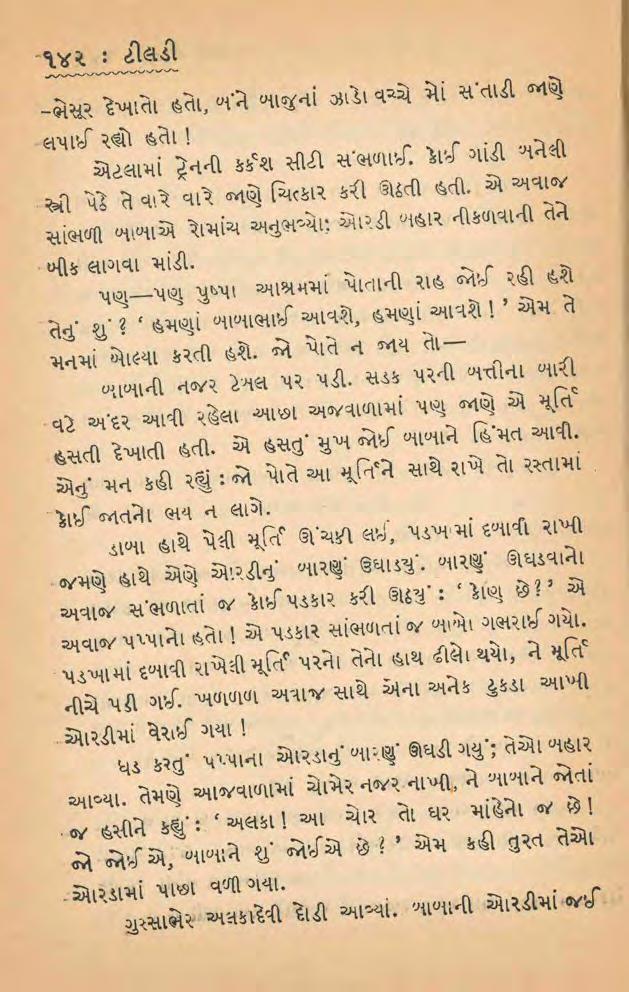 ૧૪૨ : ટીલડી
-ભેસૂર દેખાતો હતો, બંને બાજુનાં ઝાડો વચ્ચે મોં સંતાડી જાણે
લપાઈ રહ્યો હતો !
એટલામાં ટ્રેનની કર્કશ સીટી સંભળાઈ. કોઈ ગાંડી બનેલી
સ્ત્રી પેઠે તે વારે વારે જાણે ચિત્કાર કરી ઊઠતી હતી. એ અવાજ
સાંભળી બાબાએ રોમાંચ અનુભવ્યો; ઓરડી બહાર નીકળવાની તેને
બીક લાગવા માંડી.
પણ—પણ પુષ્પા આશ્રમમાં પોતાની રાહ જોઈ રહી હશે
તેનું શું ? ‘ હમણાં બાબાભાઈ આવશે, હમણાં આવશે ! ’ એમ તે
મનમાં બોલ્યા કરતી હશે. જો પોતે ન જાય તો—
બાબાની નજર ટેબલ પર પડી. સડક પરની બત્તીના બારી
વટે અંદર આવી રહેલા આછા અજવાળામાં પણ જાણે એ મૂર્તિ
હસતી દેખાતી હતી. એ હસતું મુખ જોઈ બાબાને હિંમત આવી.
એનું મન કહી રહ્યું : જો પોતે આ મૂર્તિને સાથે રાખે તો રસ્તામાં
કોઈ જાતનો ભય ન લાગે.
ડાબા હાથે પેલી મૂર્તિ ઊંચકી લઈ, પડખામાં દબાવી રાખી
જમણે હાથે એણે ઓરડીનું બારણું ઉઘાડયું. બારણું ઊઘડવાનો
અવાજ સંભળાતાં જ કોઈ પડકાર કરી ઊઠયું : ‘ કોણ છે ? ’ એ
અવાજ પપ્પાનો હતો ! એ પડકાર સાંભળતાં જ બાબો ગભરાઈ ગયો.
પડખામાં દબાવી રાખેલી મૂર્તિ પરનો તેનો હાથ ઢીલો થયો, ને મૂર્તિ
નીચે પડી ગઈ. ખળળળ અવાજ સાથે એના અનેક ટુકડા આખી
ઓરડીમાં વેરાઈ ગયા !
ધડ કરતું પપ્પાના ઓરડાનું બારણું ઊઘડી ગયું; તેઓ બહાર
આવ્યા. તેમણે આજવાળામાં ચોમેર નજર નાખી, ને બાબાને જોતાં
જ હસીને કહ્યું : ‘ અલકા ! આ ચોર તો ઘર માંહેનો જ છે !
જો જોઈ એ, બાબાને શું જોઈએ છે ? ’ એમ કહી તુરત તેઓ
ઓરડામાં પાછા વળી ગયા.
ગુસ્સાભેર અલકાદેવી દોડી આવ્યાં. બાબાની ઓરડીમાં જઈ